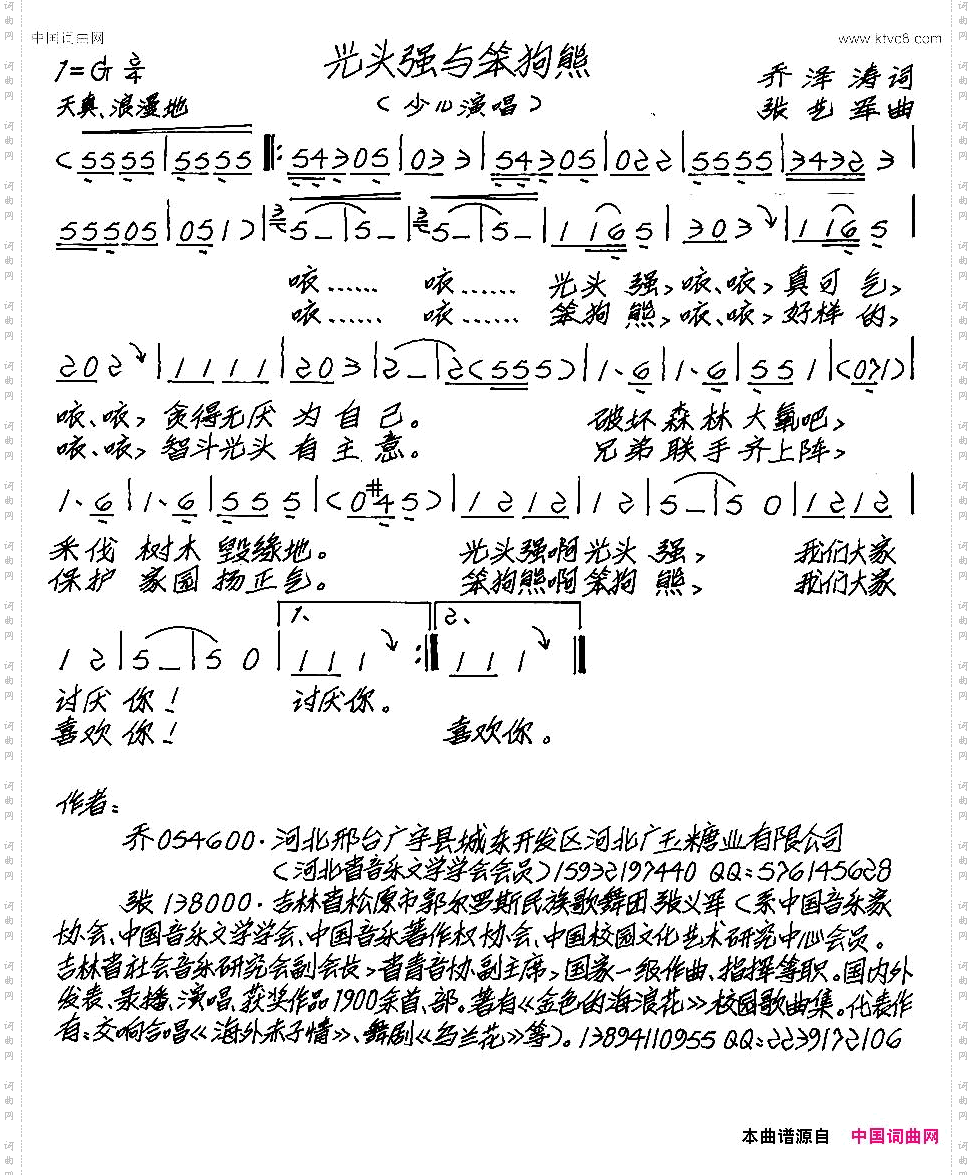 中国词曲网
www.ktvc8.com
1=G 2/4
光头强与笨狗熊
乔泽涛词
天真、浪漫地
(少儿演唱)
张艺军曲
(5555|5555‖:54305|033|54305|022|5555|34323|
55505|051)|5–|5–|5–|5–|1165|303|1165|
咳…… 咳…… 光头强,咳、咳,真可气,
咳…… 咳…… 笨狗熊,咳、咳,好样的,
202|1111|203|2–|2(555)|1、6|1、6|551|(071)|
咳、咳,贪得无厌为自己。 破坏森林大氧吧,
咳、咳,智斗光头有主意。 兄弟联手齐上阵,
1、6|1、6|555|(0#45)|1212|12|5–|50|1212|
采伐树木毁绿地。 光头强啊光头强, 我们大家
保护家园扬正气。 笨狗熊啊笨狗熊, 我们大家
1、 2、
12|5–|50|111:‖111‖
讨厌你! 讨厌你。
喜欢你! 喜欢你。
作者:
乔054600·河北邢台广宗县城东开发区河北广玉糖业有限公司
(河北省音乐文学学会会员)15932197440 QQ:576145628
张138000·吉林省松原市郭尔罗斯民族歌舞团张义军(系中国音乐家
协会、中国音乐文学学会、中国音乐著作权协会、中国校园文化艺术研究中心会员。
吉林省社会音乐研究会副会长,省青音协副主席,国家一级作曲、指挥等职。国内外
发表、录播、演唱、获奖作品1900余首、部。著有《金色的海浪花》校园歌曲集。代表作
有:交响合唱《海外赤子情》、舞剧《乌兰花》等)。13894110955 QQ:2239172106
本曲谱源自 中国词曲网